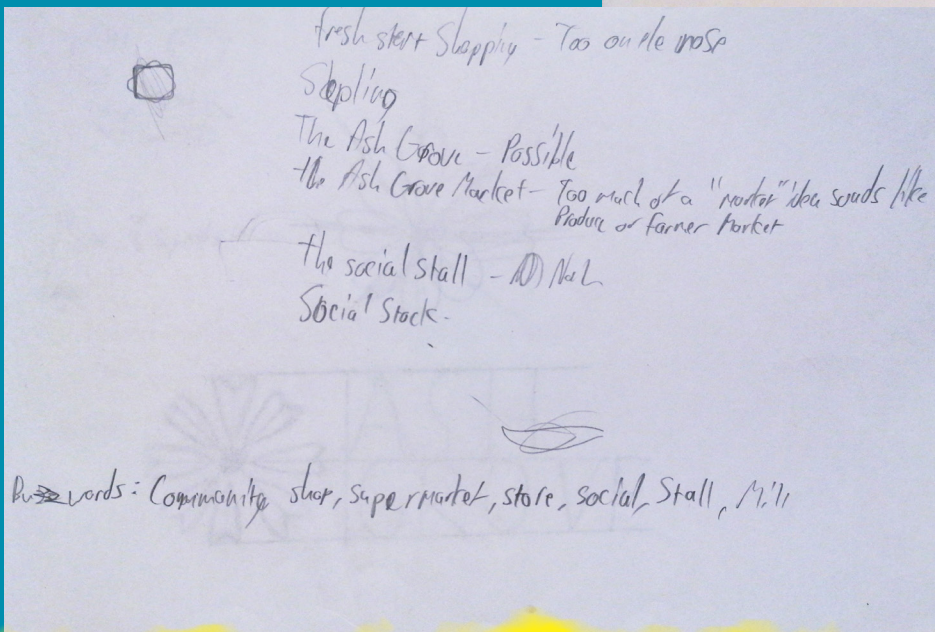 fresh start Shopping - Too on the nose
The Ash Grove - Possible
the Ash Grove Market - Too much of a "market" idea sounds like
Produce or Farmer Market
the social stall -
Social Stock.
Buzzwords: Community shop, supermarket, store, social, Stall,